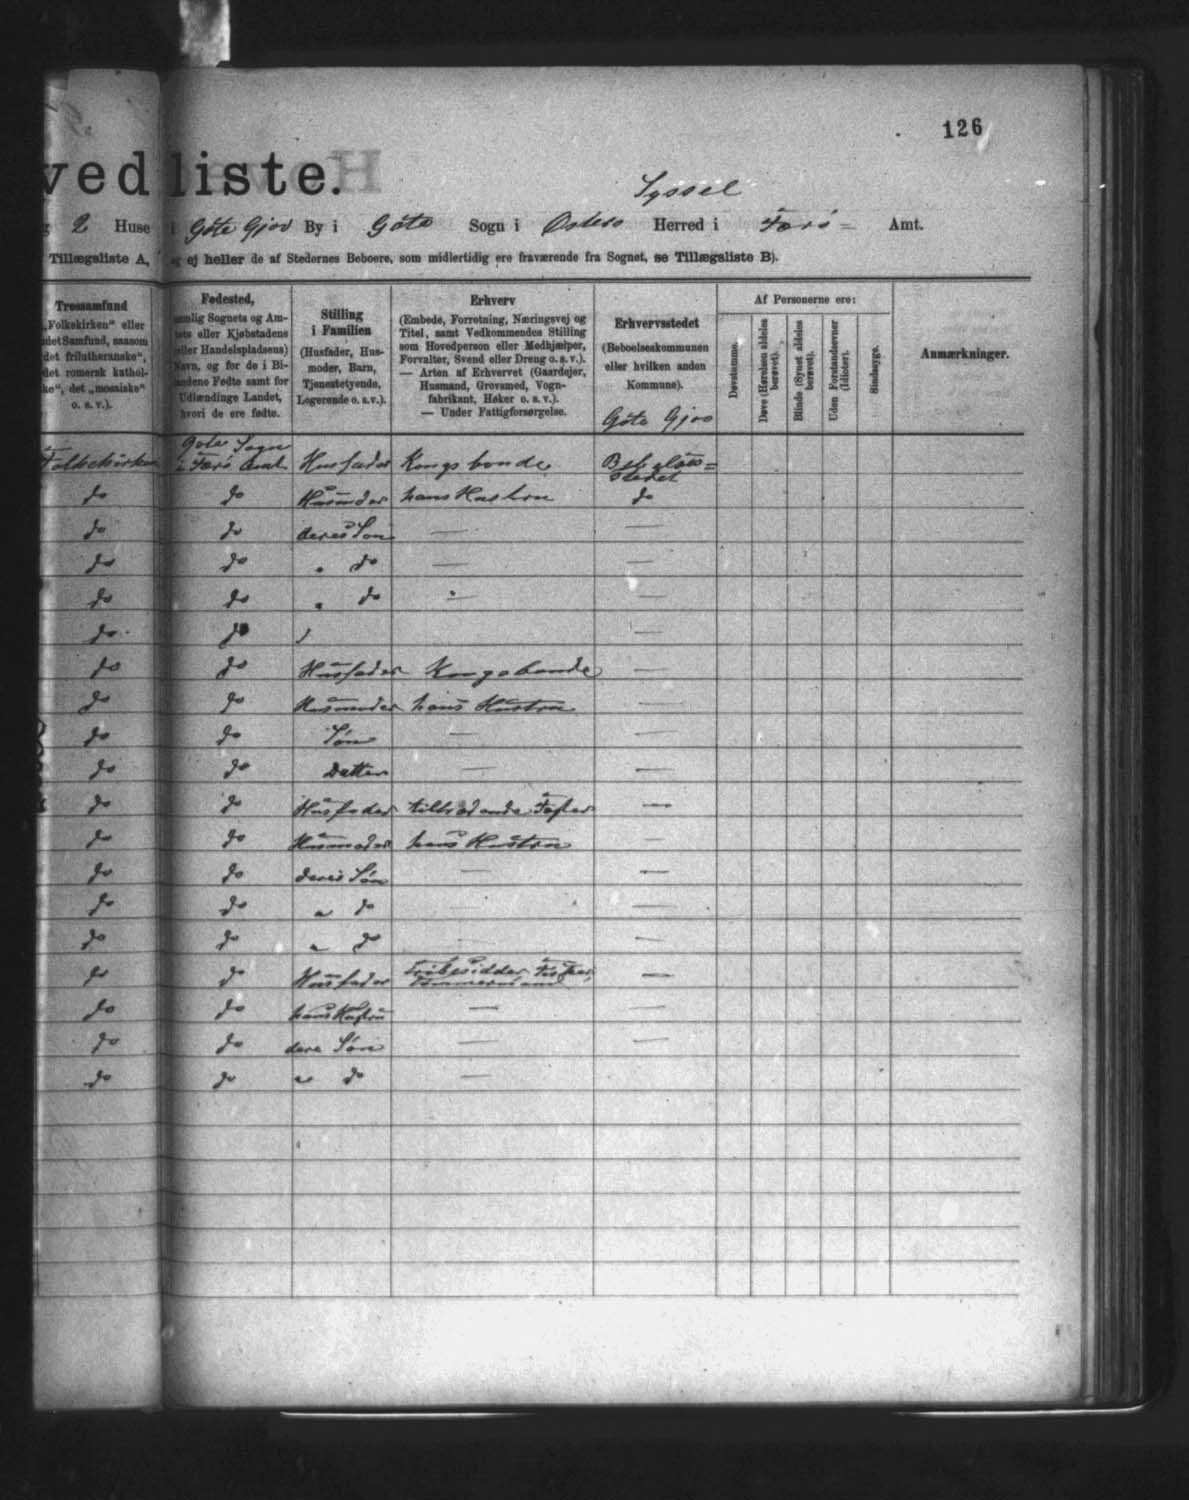 126
vedliste.
Syssel
g 2 Huse i Göte Gjov By i Göte Sogn i Østerø Herred i Færø= Amt.
Tillægsliste A, og ej heller de af Stedernes Beboere, som midlertidig ere fraværende fra Sognet, se Tillægsliste B).
Trossamfund
„Folkekirken“ eller
det Samfund, saasom
det frilutheranske“,
det romersk kathol-
ke“, det „mosaiske“
o. s. v.).
Fødested,
nemlig Sognets og Am-
tets eller Kjøbstadens
(eller Handelspladsens)
Navn, og for de i Bi-
landene Fødte samt for
Udlændinge Landet,
hvori de ere fødte.
Stilling
i Familien
(Husfader, Hus-
moder, Barn,
Tjenestetyende,
Logerende o. s. v.).
Erhverv
(Embede, Forretning, Næringsvej og
Titel, samt Vedkommendes Stilling
som Hovedperson eller Medhjælper,
Forvalter, Svend eller Dreng o. s. v.).
— Arten af Erhvervet (Gaardejer,
Husmand, Grovsmed, Vogn-
fabrikant, Høker o. s. v.).
— Under Fattigforsørgelse.
Erhvervsstedet
(Beboelseskommunen
eller hvilken anden
Kommune).
Göte Gjov
Af Personerne ere:
Døvstumme.
Døve (Hørelsen aldeles
berøvet).
Blinde (Synet aldeles
berøvet).
Uden Forstandsevner
(Idioter).
Sindssyge.
Anmærkninger.
Göte Sogn
Folkekirken i Færö Amt Husfader Kongsbonde Bebolses=
stedet
do do Husmoder hans Hustru do
do do deres Søn — —
do do „ do — —
do do „ do — —
do do —
do do Husfader Kongsbonde —
do do Husmoder hans Hustru —
do do Søn — —
do do Datter — —
do do Husfader tiltrædende Fæster —
do do Husmoder hans Hustru —
do do deres Søn — —
do do „ do — —
do do „ do — —
do do Husfader Fisker, —
Tømmermand
do do hans Hustru — —
do do dere Søn — —
do do „ do —